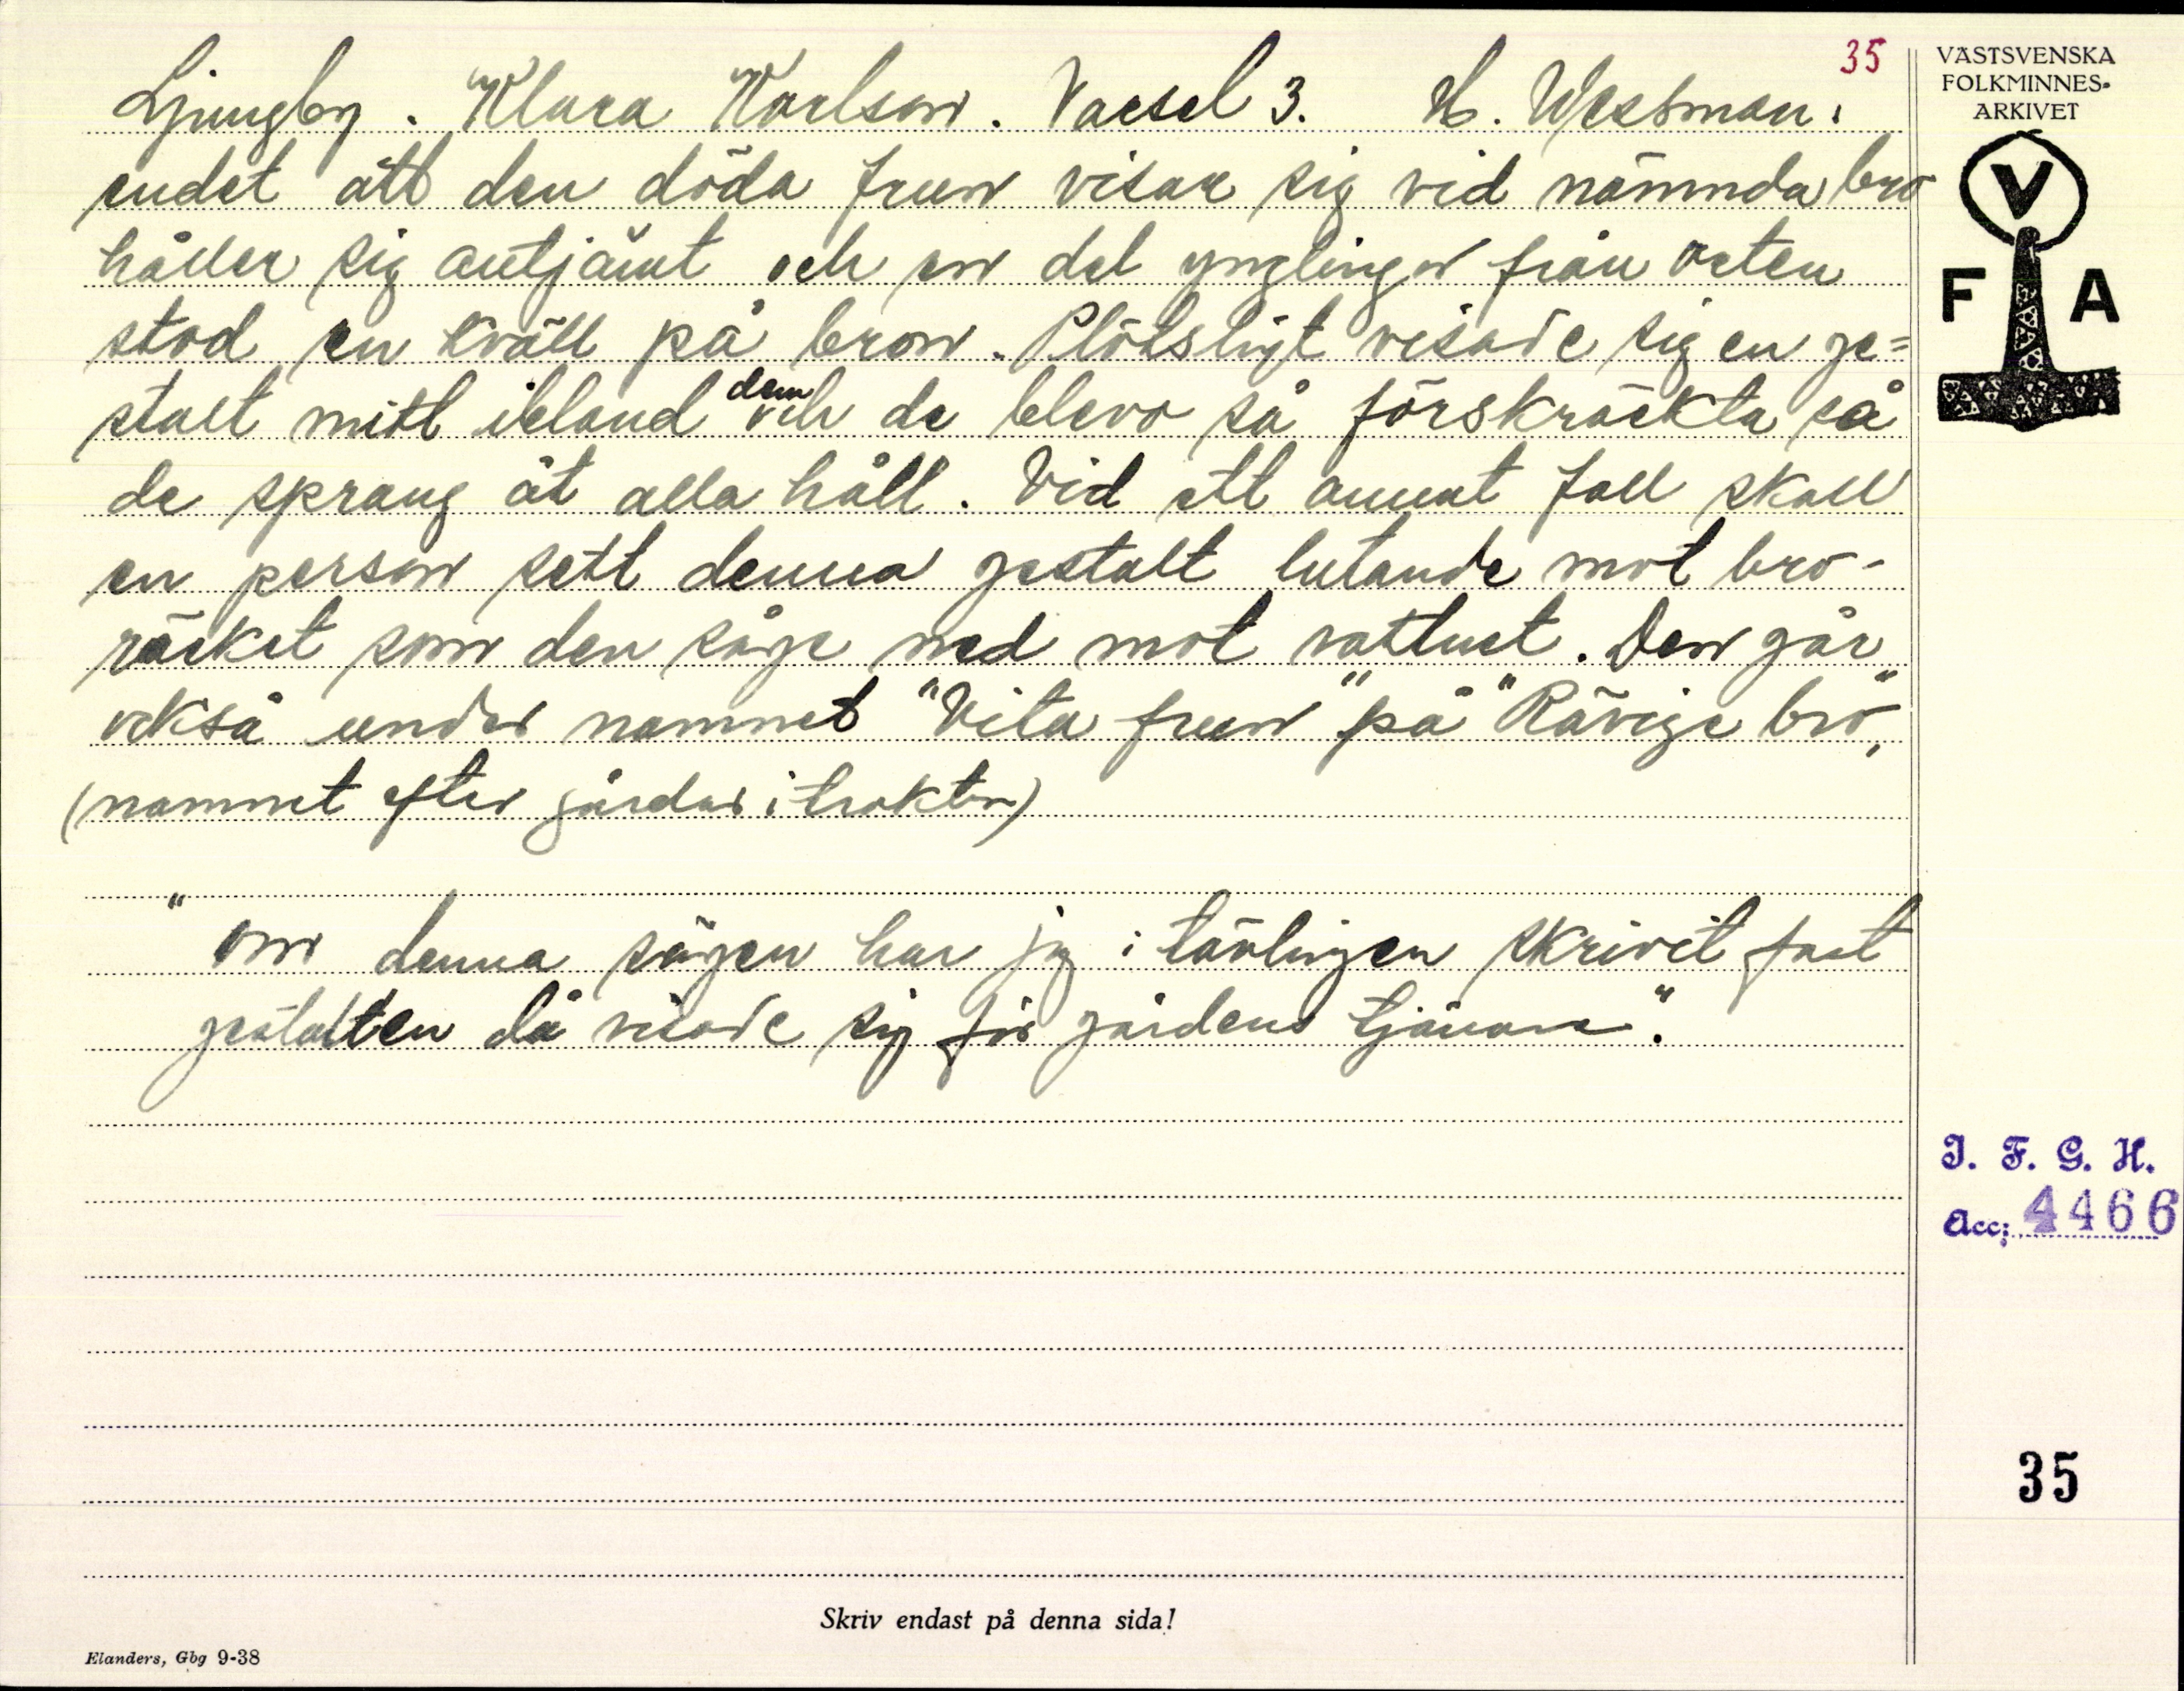 35
Ljungby. Klara Karlson. Varsel 3. H. Westman.
endet att den döda frun visar sig vid nämnda bro
håller sig alltjämt och en del ynglingar från orten
stod en kväll på bron. Plötsligt visade sig en ge=
stalt mitt ibland dem och de blevo så förskräckta så
de sprang åt alla håll. Vid ett annat fall skall
en person sett denna gestalt lutande mot bro-
räcket som den såge ned mot vattnet. Den går
också under namnet "Vita frun" på "Rävige bro",
(namnet efter gårdar i trakten)
" om denna sägen har jag i tävlingen skrivit fast
gestalten då visade sig för gårdens tjänare".
VÄSTSVENSKA
FOLKMINNES-
ARKIVET
V
F A
I. F. G. H.
Acc: 4466
35
Skriv endast på denna sida!
Elanders, Gbg 9-38